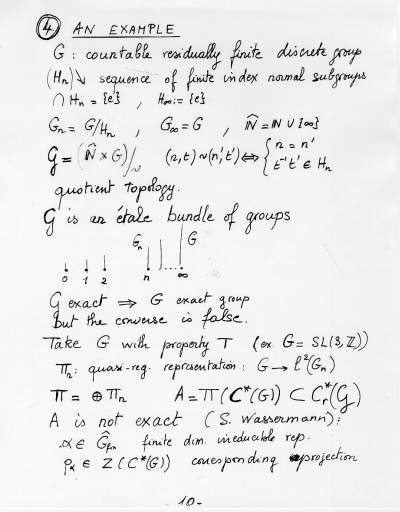 ④ AN EXAMPLE
G : countable residually finite discrete group
(Hₙ)↘ sequence of finite index normal subgroups
∩ Hₙ = {e} , H∞ := {e}
Gₙ = G/Hₙ , G∞ = G , N̂ = N ∪ {∞}
𝒢 = (N̂ × G)/~ (n,t) ~ (n',t') ⇔ { n = n' t⁻¹t' ∈ Hₙ
quotient topology.
𝒢 is an étale bundle of groups
Gₙ G
0 1 2 n ∞
𝒢 exact ⇒ G exact group
But the converse is false.
Take G with property T (ex. G = SL(3,ℤ))
Πₙ: quasi-reg. representation : G → l²(Gₙ)
Π = ⊕ Πₙ A = Π(C*(G)) ⊂ Cᵣ*(𝒢)
A is not exact (S. Wassermann) :
α ∈ Ĝfin finite dim. irreducible rep.
pα ∈ Z(C*(G)) corresponding projection
- 10 -